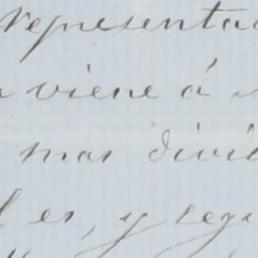 representa
viene á
mas divi
es, y legi